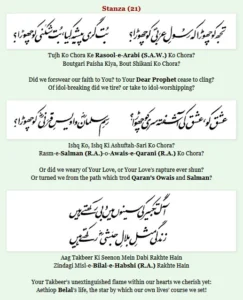 Stanza (21)
تجھ کو چھوڑا کہ رسولِ عربی کو چھوڑا؟
بُت گری پیشہ کیا، بُت شکنی کو چھوڑا؟
Tujh Ko Chora Ke Rasool-e-Arabi (S.A.W.) Ko Chora?
Boutgari Paisha Kiya, Bout Shikani Ko Chora?
Did we forswear our faith to You? to Your Dear Prophet cease to cling?
Of idol-breaking did we tire? or take to idol-worshipping?
عشق کو، عشق کی آشفتہ سری کو چھوڑا؟
رسمِ سلمانؓ و اویسِ قرنیؓ کو چھوڑا؟
Ishq Ko, Ishq Ki Ashuftah-Sari Ko Chora?
Rasm-e-Salman (R.A.)-o-Awais-e-Qarani (R.A.) Ko Chora?
Or did we weary of Your Love, or Your Love's rapture ever shun?
Or turned we from the path which trod Qaran's Owais and Salman?
آگ تکبیر کی سینوں میں دبی رکھتے ہیں
زندگی مثلِ بلالِ حبشیؓ رکھتے ہیں
Aag Takbeer Ki Seenon Mein Dabi Rakhte Hain
Zindagi Misl-e-Bilal-e-Habshi (R.A.) Rakhte Hain
Your Takbeer's unextinguished flame within our hearts we cherish yet:
Aethiop Belal's life, the star by which our own lives' course we set!